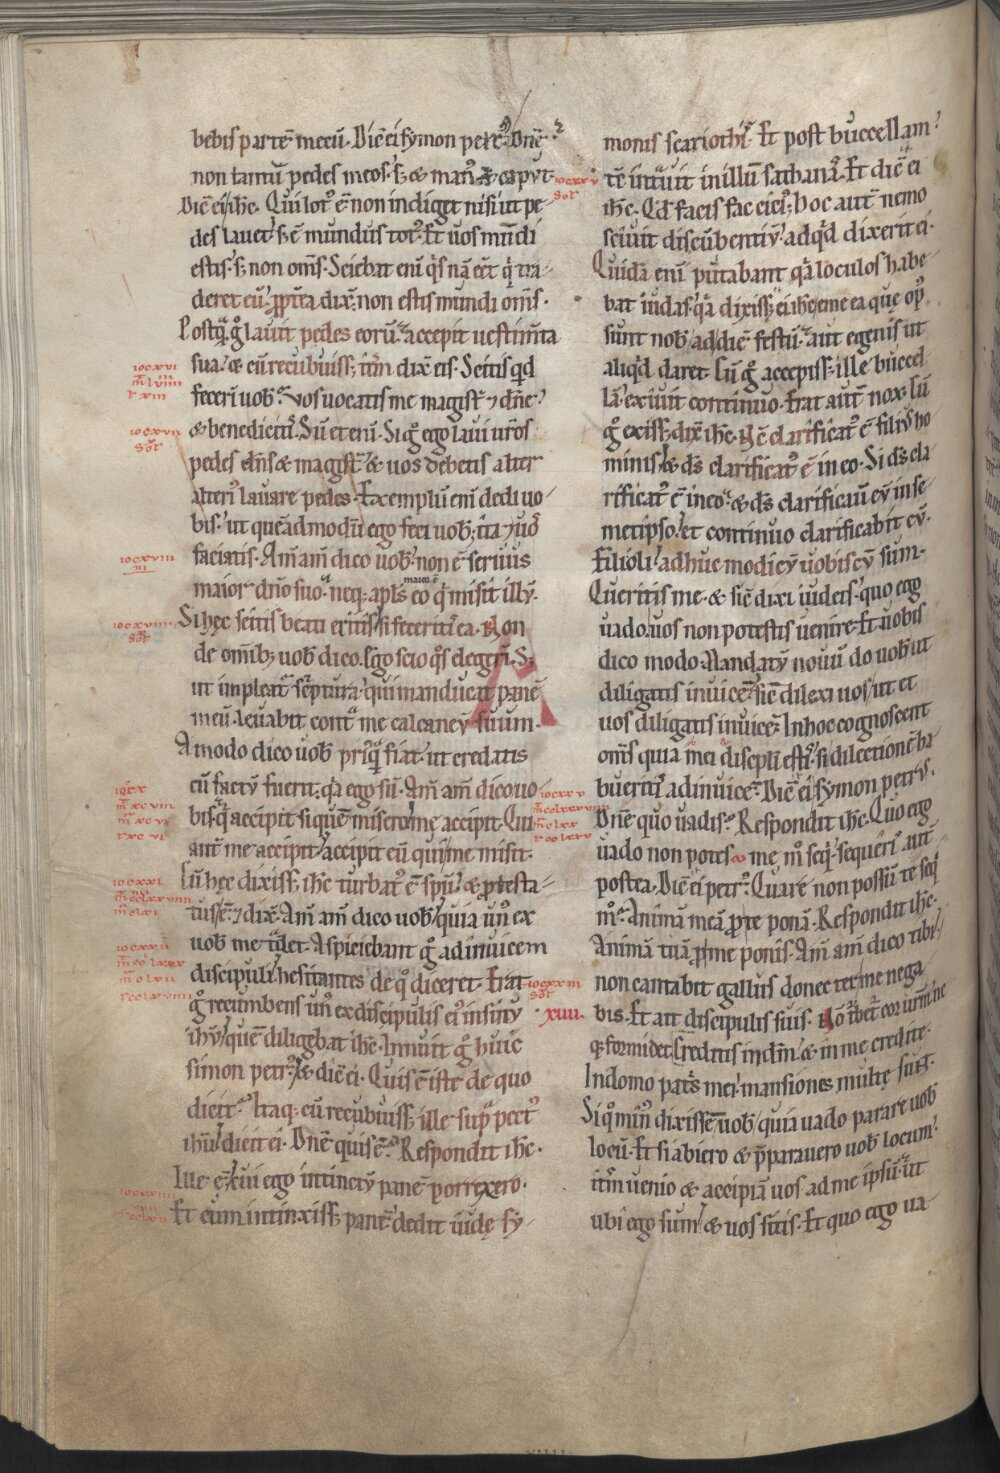 bebis partē mecū. Dic̄ ei symon petrꝰ. Dn̄e
non tantū pedes meos. s; & manꝰ & capvt.
Dic̄ ei ih̄c. Qui lotꝰ ē non indiget nisi ut pe-
des lauet. s; ē mundus totꝰ. Et uos mūdi
estis. s; non om̄s. Sciebat enī qͥs nā eēt qͥ tra-
deret eū. ꝓpt̄a dix̄. non estis mundi om̄s.
Postqͣ gͦ lauit pedes eorū. accepit uestim̄ta
sua. & cū recubuiss; itm̄ dix̄ eis. Scitis qͥd
fecerī uob. Vos uocatis me magistr̄ ⁊ dn̄e.
& benedicitis. Sū etenī. Si gͦ ego laui ur̄os
pedes dn̄s & magistr̄. & uos debetis alter
alteriꝰ lauare pedes. Exemplū enī dedi uo-
bis. ut quēadmodū ego feci uob. ita ⁊ uoˢ
faciatis. Am̄ am̄ dico uob. non ē seruus
maior dn̄o suo. neqꝫ apl̄s maior ē eo qͥ misit illū.
Si hęc scitis beati eritis si feceritis ea. Non
de om̄ibꝫ uob dico. Ego scio qͦs elegerī. S;
ut impleat̄ sc̄ptura. qui manducat panē
meū. leuabit cont̄ me calcaneū suum.
A modo dico uob priꝰqͣ fiat. ut credatis
cū factū fuerit. qͥa ego sū. Am̄ am̄ dico uo-
bis. qͥ accipit siquē misero. me accipit. Qui
aut̄ me accipit. accipit eū qui me misit.
Cū hęc dixiss; ih̄c turbatꝰ ē spū. & ꝓtesta-
tus ē. ⁊ dix̄. Am̄ am̄ dico uob. quia unꝰ ex
uob me tͣdet. Aspiciebant gͦ adinuicem
discipuli. hesitantes de qͦ diceret. Erat
gͦ recumbens unꝰ ex discipulis eiꝰ in sinu
ih̄u. quē diligebat ih̄c. Innuit gͦ huic
simon petrꝰ. & dic̄ ei. Quis ē iste de quo
dicit. Itaqꝫ cū recubuiss; ille supͣ pectꝰ
ih̄u. dicit ei. Dn̄e quis ē. Respondit ih̄c.
Ille ē. cui ego intinctū panē porrexero.
Et cum intinxiss; panē. dedit iudę sy-
monis scariothis. Et post buccellam.
tc̄ intͦuit in illū sathanas. Et dic̄ ei
ih̄c. Qd̄ facis fac citiꝰ. Hoc aut̄ nemo
sciuit discūbentiū. ad qͥd dixerit ei.
Quidā enī putabant. qͥa loculos habe-
bat iudas. qͥa dixiss; ei ih̄c. eme ea que opꝰ
sunt nob ad diē festū. aut egenis ut
aliqͥd daret. Cū gͦ accepiss; ille buccel-
lā. exiuit continuo. Erat aut̄ nox. Cū
gͦ exiss; dix̄ ih̄c. Nc̄ clarificatꝰ ē filiꝰ ho-
minis. & ds̄ clarificatꝰ ē in eo. Si ds̄ cla-
rificatꝰ ē in eo. & ds̄ clarificauit eū in se-
metipso. et continuo clarificabit eū.
Filioli. adhuc modicū uobiscū sum.
Queritis me. & sic̄ dixi iudeis. quo ego
uado. uos non potestis uenire. Et uobis
dico modo. Mandatū nouū do uob. ut
diligatis inuicē. sic̄ dilexi uos. ut et
uos diligatis inuicē. In hoc cognoscent
om̄s quia mei discipuli estis. si dilectionē ha-
bueritis adinuicē. Dic̄ ei symon petrus.
Dn̄e quo uadis. Respondit ih̄c. Quo ego
uado non potes me mͦ seqͥ. sequeris aut̄
postea. Dic̄ ei petrꝰ. Quare non possū te seqͥ
mͦ. Animā meā ꝓ te ponā. Respondit ih̄c.
Animā tuā ꝓ me ponis. Am̄ am̄ dico tibi.
non cantabit gallus donec ter me nega-
bis. Et ait discipulis suis. Nō t̄bet̄ cor ur̄m. ne
qꝫ formidet. Creditis in dm̄. & in me credite.
In domo patris mei. mansiones multę sunt.
Si qͦ minꝰ dixissē uob. quia uado parare uob
locū. Et si abiero & p̄parauero uob locum.
itm̄ uenio & accipiā uos ad me ipsū. ut
ubi ego sum. & uos sitis. Et quo ego ua-
xiiii.